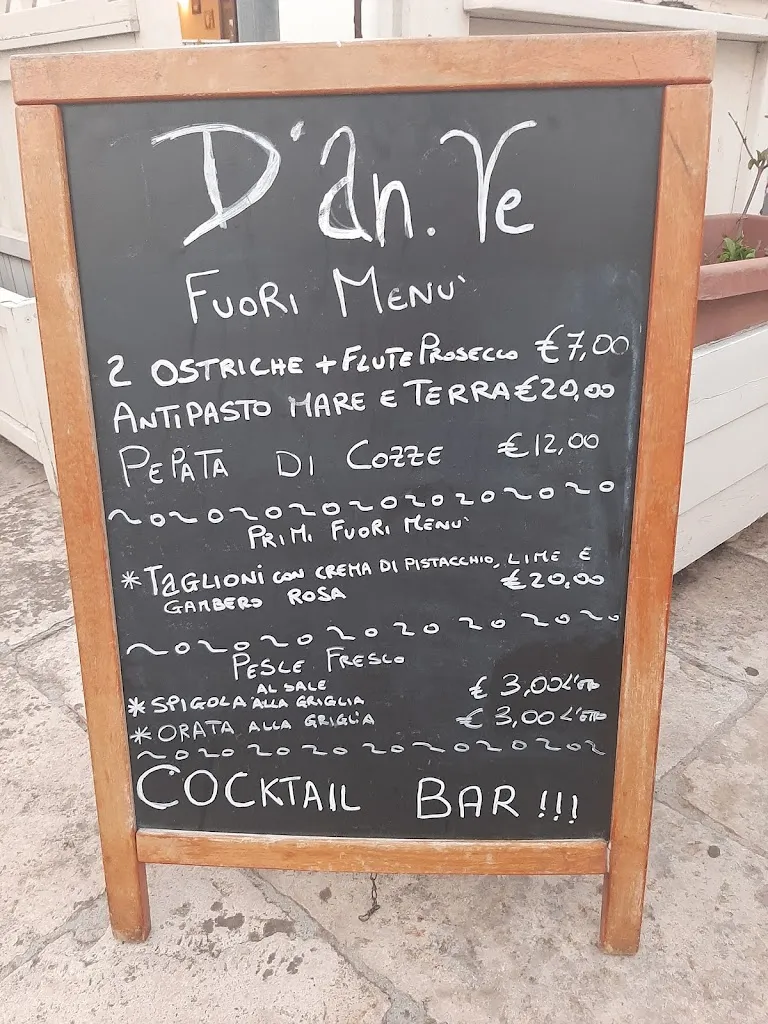 D'an.Ve
FUORI MENU'
2 OSTRICHE + FLUTE PROSECCO €7,00
ANTIPASTO MARE E TERRA €20,00
PEPATA DI COZZE €12,00
PRIMI FUORI MENU'
* TAGLIONI CON CREMA DI PISTACCHIO, LIME E
GAMBERO ROSA €20,00
PESCE FRESCO
AL SALE
* SPIGOLA ALLA GRIGLIA € 3,00 L'ETTO
* ORATA ALLA GRIGLIA € 3,00 L'ETTO
COCKTAIL BAR !!!